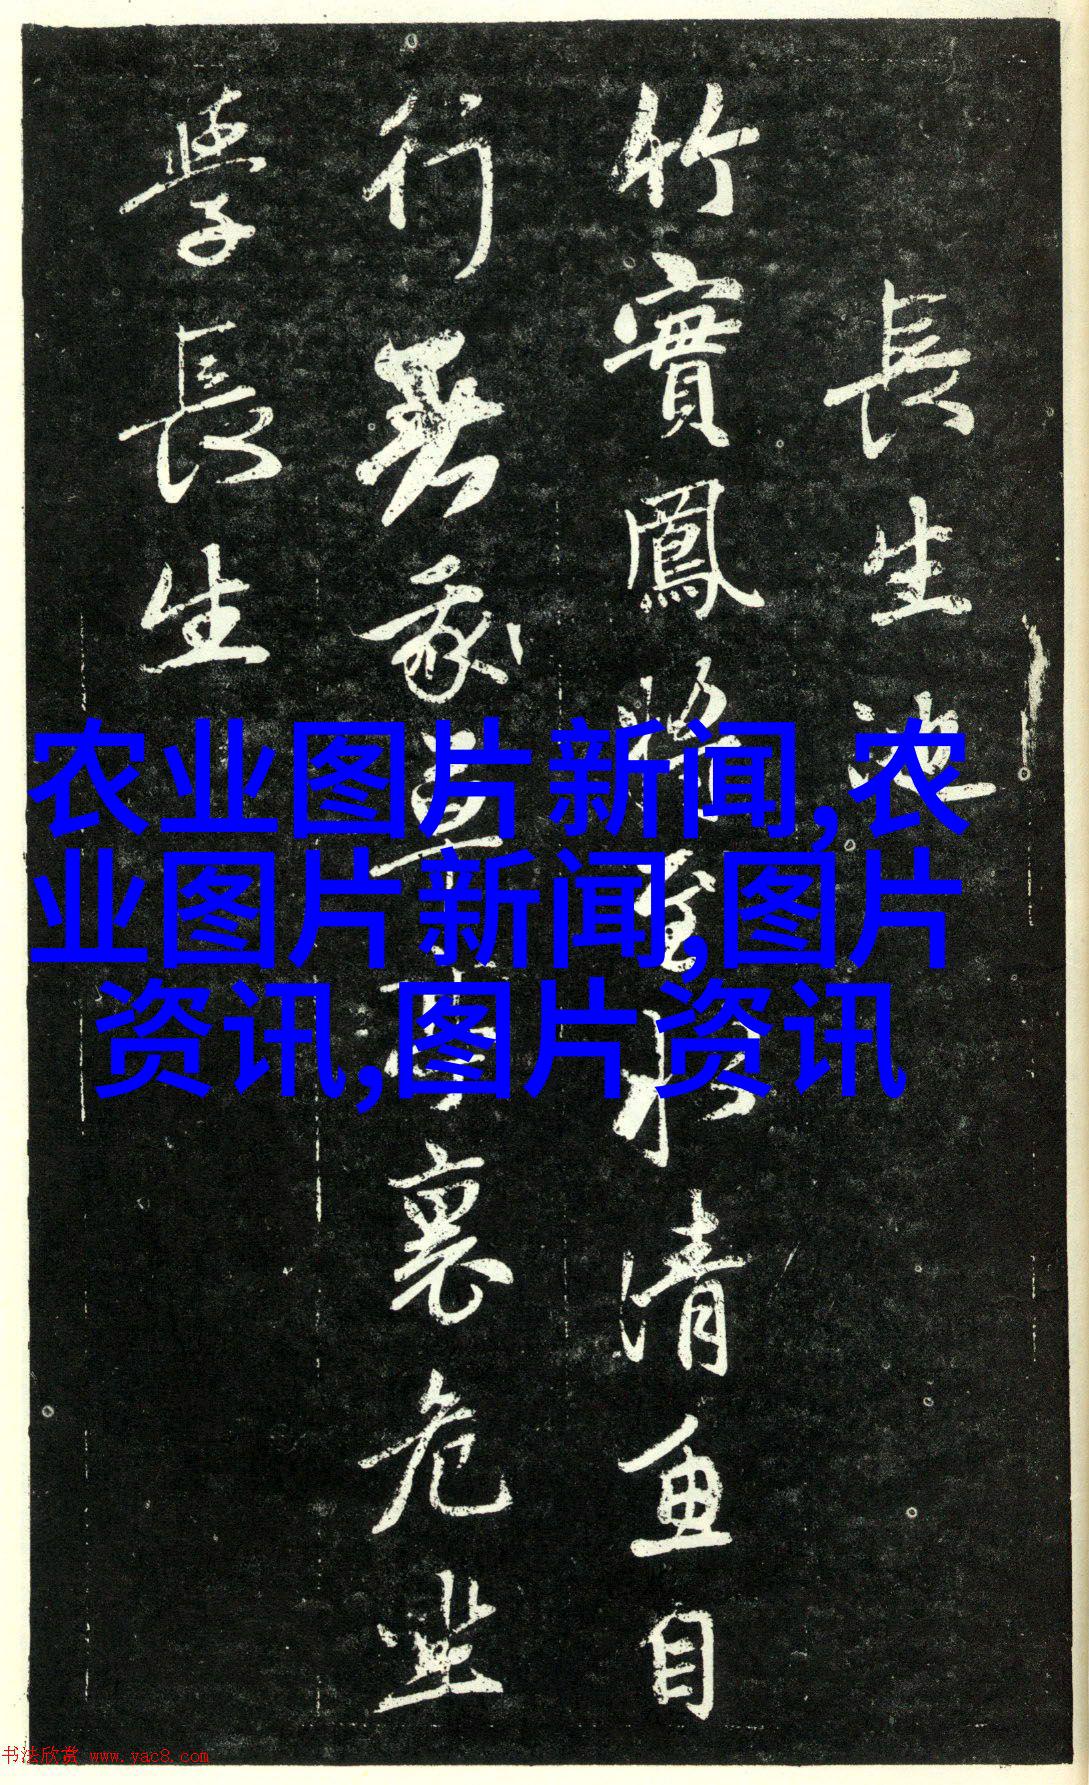 長生池
竹實鳳將至水清魚自
行無家畫裏危坐
學長生
农业图片新闻,农
业图片新闻,图片
资讯,图片资讯
书法欣赏 www.yac8.com